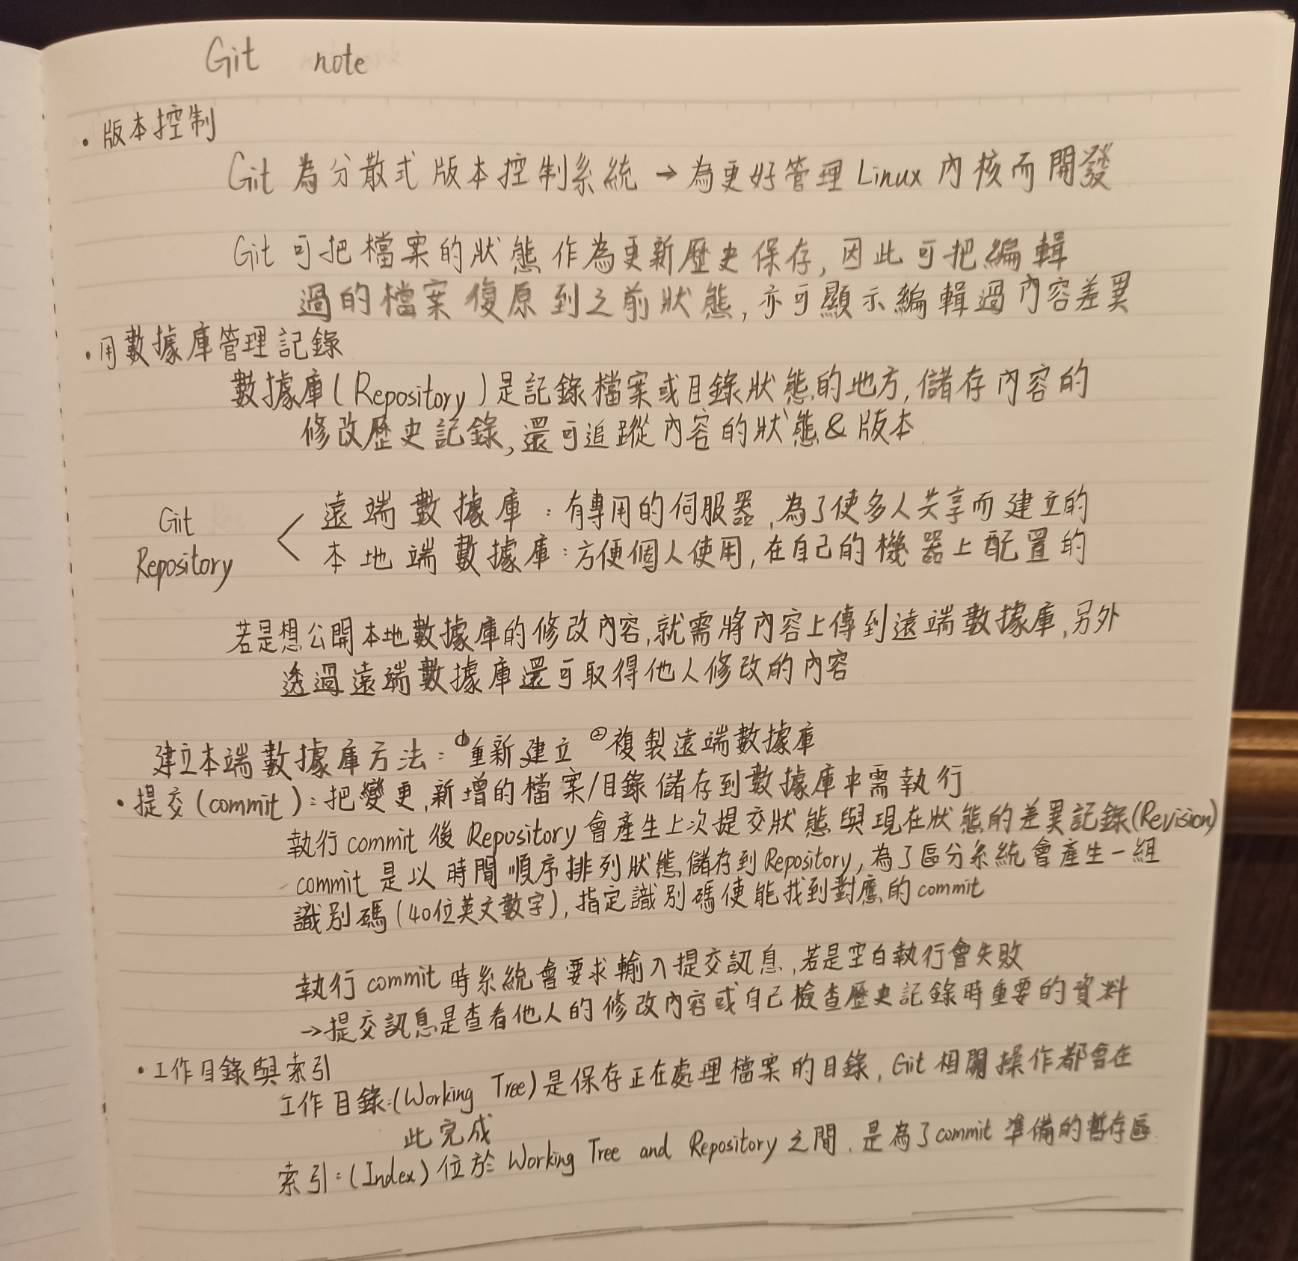 Git note
・版本控制
Git 為分散式版本控制系統 → 為更好管理 Linux 內核而開發
Git 可把檔案的狀態作為更新歷史保存, 因此可把編輯
過的檔案復原到之前狀態, 亦可顯示編輯過內容差異
・用數據庫管理記錄
數據庫(Repository)是記錄檔案或目錄狀態的地方, 儲存內容的
修改歷史記錄, 還可追蹤內容的狀態 & 版本
Git Repository < 遠端數據庫：有專用的伺服器, 為了使多人共享而建立的
本地端數據庫：方便個人使用, 在自己的機器上配置的
若是想公開本地數據庫的修改內容, 就需將內容上傳到遠端數據庫, 另外
透過遠端數據庫還可取得他人修改的內容
建立本端數據庫方法：①重新建立 ②複製遠端數據庫
・提交(commit)：把變更, 新增的檔案/目錄儲存到數據庫中需執行
執行 commit 後 Repository 會產生上次提交狀態與現在狀態的差異記錄(Revision)
commit 是以時間順序排列狀態, 儲存到 Repository, 為了區分系統會產生一組
識別碼(40位英文數字), 指定識別碼使能找到對應的 commit
執行 commit 時系統會要求輸入提交訊息, 若是空白執行會失敗
→提交訊息是查看他人的修改內容或自己檢查歷史記錄時重要的資料
・工作目錄與索引
工作目錄：(Working Tree) 是保存正在處理檔案的目錄, Git 相關操作都會在
此完成
索引：(Index) 位於 Working Tree and Repository 之間, 是為了 commit 準備的暫存區